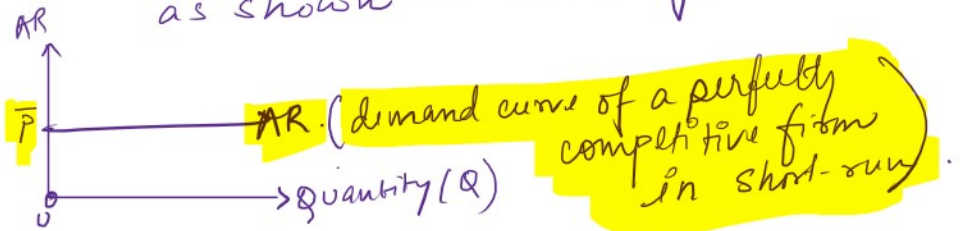 as shown
AR
P̅
AR. (demand curve of a perfectly
competitive firm
in short-run).
O
→ Quantity (Q)